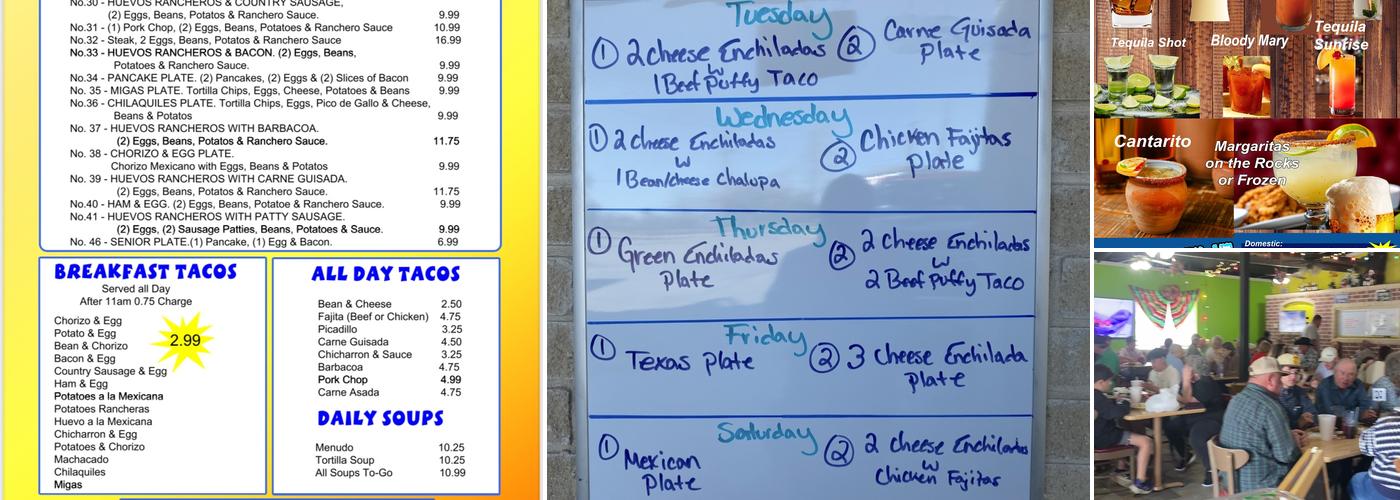 No.30 - HUEVOS RANCHEROS & COUNTRY SAUSAGE,
(2) Eggs, Beans, Potatos & Ranchero Sauce. 9.99
No.31 - (1) Pork Chop, (2) Eggs, Beans, Potatoes & Ranchero Sauce 10.99
No.32 - Steak, 2 Eggs, Beans, Potatos & Ranchero Sauce 16.99
No.33 - HUEVOS RANCHEROS & BACON. (2) Eggs, Beans,
Potatoes & Ranchero Sauce. 9.99
No.34 - PANCAKE PLATE. (2) Pancakes, (2) Eggs & (2) Slices of Bacon 9.99
No. 35 - MIGAS PLATE. Tortilla Chips, Eggs, Cheese, Potatoes & Beans 9.99
No.36 - CHILAQUILES PLATE. Tortilla Chips, Eggs, Pico de Gallo & Cheese,
Beans & Potatos 9.99
No. 37 - HUEVOS RANCHEROS WITH BARBACOA.
(2) Eggs, Beans, Potatos & Ranchero Sauce. 11.75
No. 38 - CHORIZO & EGG PLATE.
Chorizo Mexicano with Eggs, Beans & Potatos 9.99
No. 39 - HUEVOS RANCHEROS WITH CARNE GUISADA.
(2) Eggs, Beans, Potatos & Ranchero Sauce. 11.75
No.40 - HAM & EGG. (2) Eggs, Beans, Potatoe & Ranchero Sauce. 9.99
No.41 - HUEVOS RANCHEROS WITH PATTY SAUSAGE.
(2) Eggs, (2) Sausage Patties, Beans, Potatoes & Sauce. 9.99
No. 46 - SENIOR PLATE.(1) Pancake, (1) Egg & Bacon. 6.99
BREAKFAST TACOS
Served all Day
After 11am 0.75 Charge
Chorizo & Egg
Potato & Egg
Bean & Chorizo
Bacon & Egg
Country Sausage & Egg
Ham & Egg
Potatoes a la Mexicana
Potatoes Rancheras
Huevo a la Mexicana
Chicharron & Egg
Potatoes & Chorizo
Machacado
Chilaquiles
Migas
2.99
ALL DAY TACOS
Bean & Cheese 2.50
Fajita (Beef or Chicken) 4.75
Picadillo 3.25
Carne Guisada 4.50
Chicharron & Sauce 3.25
Barbacoa 4.75
Pork Chop 4.99
Carne Asada 4.75
DAILY SOUPS
Menudo 10.25
Tortilla Soup 10.25
All Soups To-Go 10.99
Tuesday
① 2 cheese Enchiladas
w
1 Beef Puffy Taco
② Carne Guisada
Plate
Wednesday
① 2 cheese Enchiladas
w
1 Bean/cheese Chalupa
② Chicken Fajitas
plate
Thursday
① Green Enchiladas
Plate
② 2 Cheese Enchiladas
w
2 Beef Puffy Taco
Friday
① Texas plate
② 3 Cheese Enchilada
plate
Saturday
① Mexican
Plate
② 2 cheese Enchiladas
w
Chicken Fajitas
Tequila Shot
Bloody Mary
Tequila
Sunrise
Cantarito
Margaritas
on the Rocks
or Frozen
Domestic: